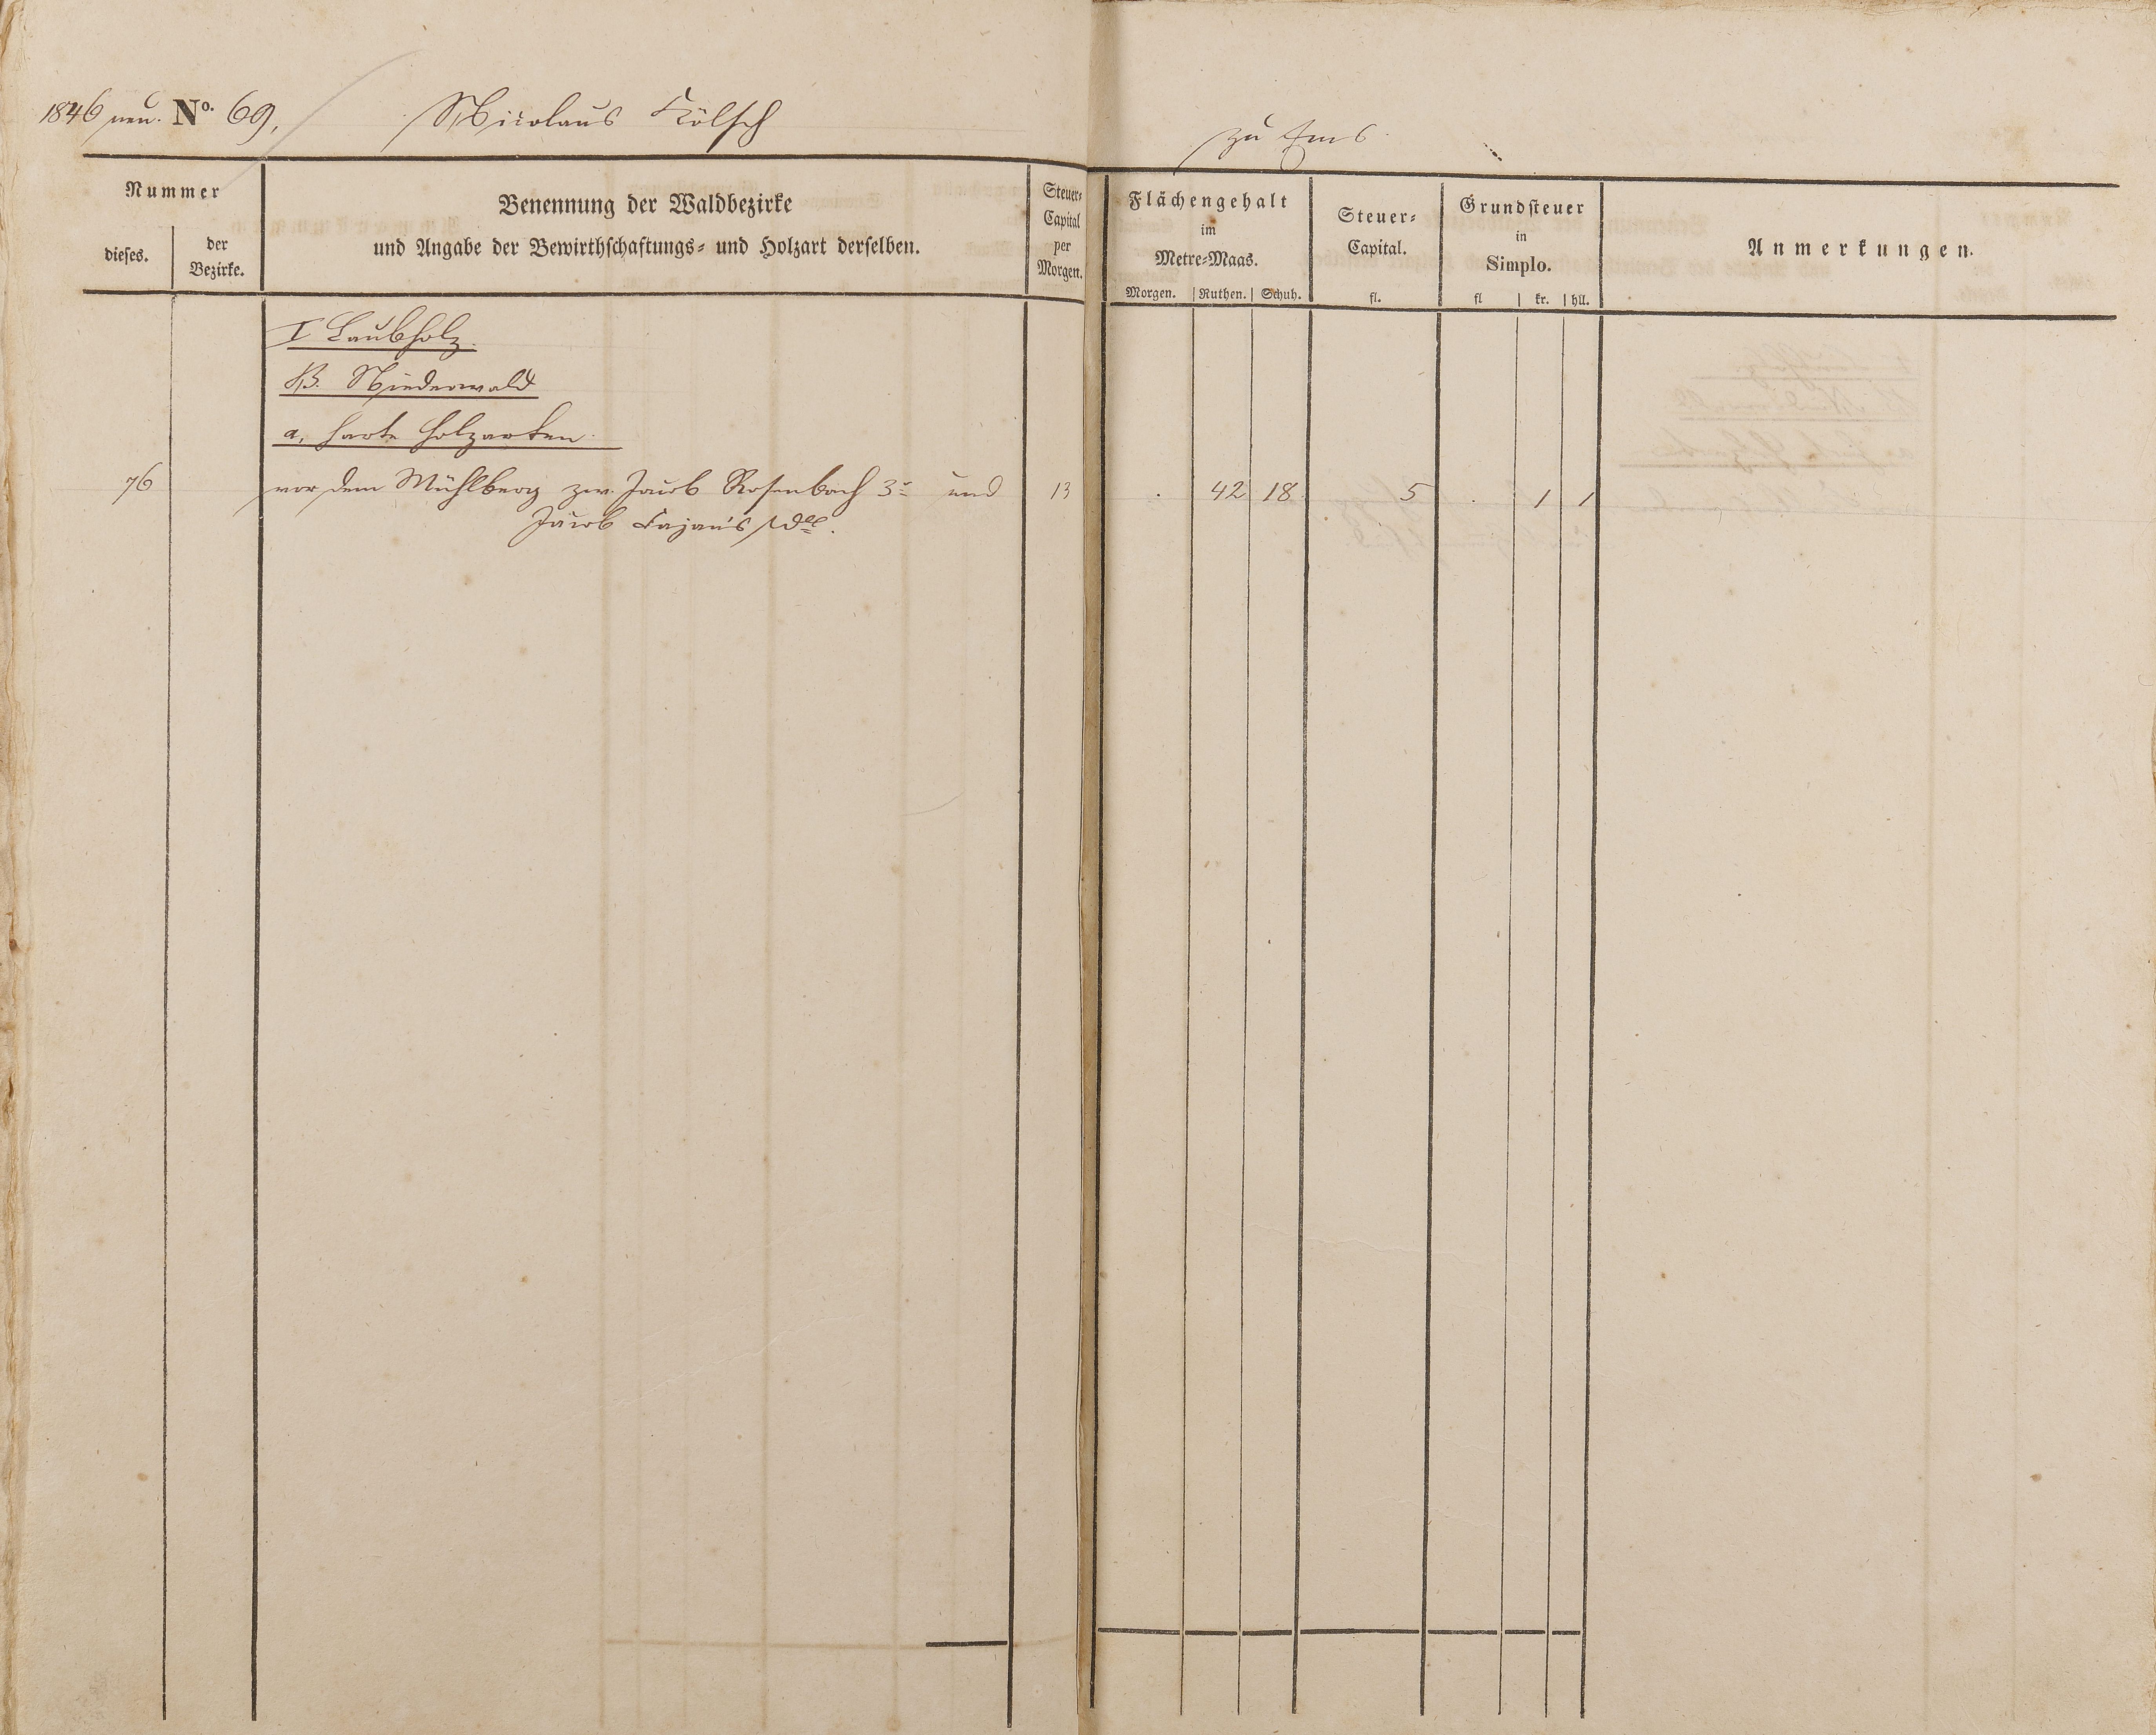 1846 neu. No. 69. Nicolaus Kölsch zu Ems
Nummer
dieses.
der
Bezirke.
Benennung der Waldbezirke
und Angabe der Bewirthschaftungs- und Holzart derselben.
Steuer-
Capital
per
Morgen.
Flächengehalt
im
Metre-Maas.
Morgen. Ruthen. Schuh.
Steuer-
Capital.
fl.
Grundsteuer
in
Simplo.
fl kr. hll.
Anmerkungen.
I Laubholz.
B. Niederwald
a, harte Holzarten.
76 vor dem Mühlberg zw. Jacob Rosenbach 3r und 13 . 42 18 5 . 1 1
Jacob